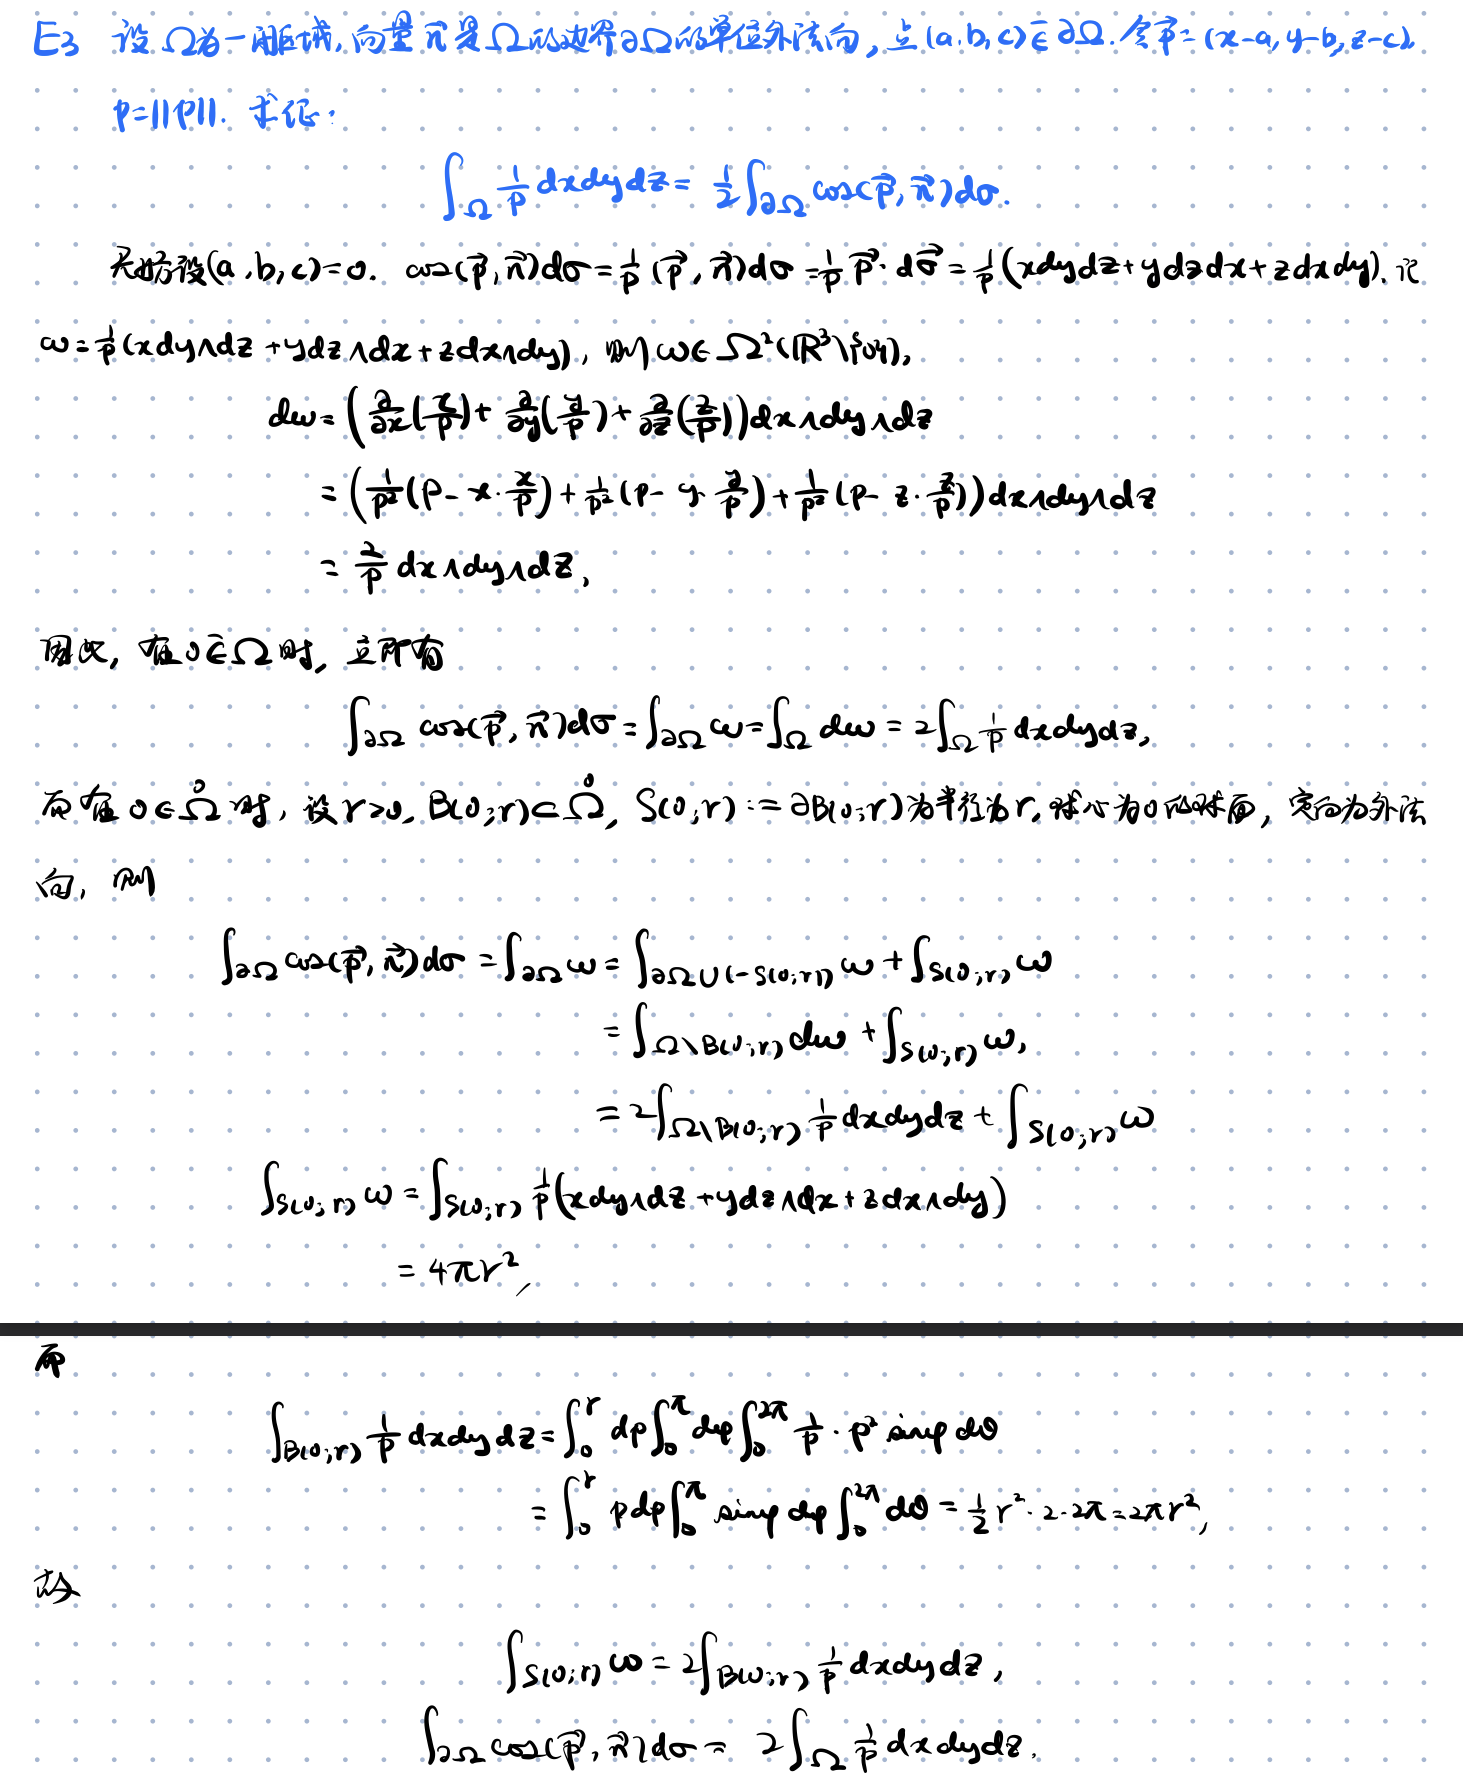 E3 设Ω为一闭区域, 向量 n⃗ 是Ω的边界∂Ω的单位外法向, 点(a,b,c)∈̄∂Ω. 令p⃗=(x-a, y-b, z-c),
p=||p||. 求证:
∫_Ω 1/p dxdydz = 1/2 ∫_∂Ω cos(p⃗, n⃗)dσ.
不妨设(a,b,c)=0. cos(p⃗, n⃗)dσ = 1/p (p⃗, n⃗)dσ = 1/p p⃗·dσ⃗ = 1/p (xdydz+ydzdx+zdxdy). 记
ω = 1/p (xdy∧dz + ydz∧dx + zdx∧dy), 则 ω∈Ω²(ℝ³\{0}),
dω = (∂/∂x(x/p) + ∂/∂y(y/p) + ∂/∂z(z/p)) dx∧dy∧dz
= (1/p²(p - x·x/p) + 1/p²(p - y·y/p) + 1/p²(p - z·z/p)) dx∧dy∧dz
= 2/p dx∧dy∧dz,
因此, 在 0∈̄Ω 时, 立即有
∫_∂Ω cos(p⃗, n⃗)dσ = ∫_∂Ω ω = ∫_Ω dω = 2∫_Ω 1/p dxdydz,
而在 0∈Ω̊ 时, 设 r>0, B(0;r)⊂Ω̊, S(0;r) := ∂B(0;r)为半径为r, 球心为0的球面, 定向为外法
向, 则
∫_∂Ω cos(p⃗, n⃗)dσ = ∫_∂Ω ω = ∫_{∂Ω∪(-S(0;r))} ω + ∫_{S(0;r)} ω
= ∫_{Ω\B(0;r)} dω + ∫_{S(0;r)} ω,
= 2∫_{Ω\B(0;r)} 1/p dxdydz + ∫_{S(0;r)} ω
∫_{S(0;r)} ω = ∫_{S(0;r)} 1/p (xdy∧dz + ydz∧dx + zdx∧dy)
= 4πr²,
而
∫_{B(0;r)} 1/p dxdydz = ∫_0^r dp ∫_0^π dφ ∫_0^{2π} 1/p · p² sinφ dθ
= ∫_0^r pdp ∫_0^π sinφ dφ ∫_0^{2π} dθ = 1/2 r²·2·2π = 2πr²,
故
∫_{S(0;r)} ω = 2∫_{B(0;r)} 1/p dxdydz,
∫_∂Ω cos(p⃗, n⃗)dσ = 2∫_Ω 1/p dxdydz.